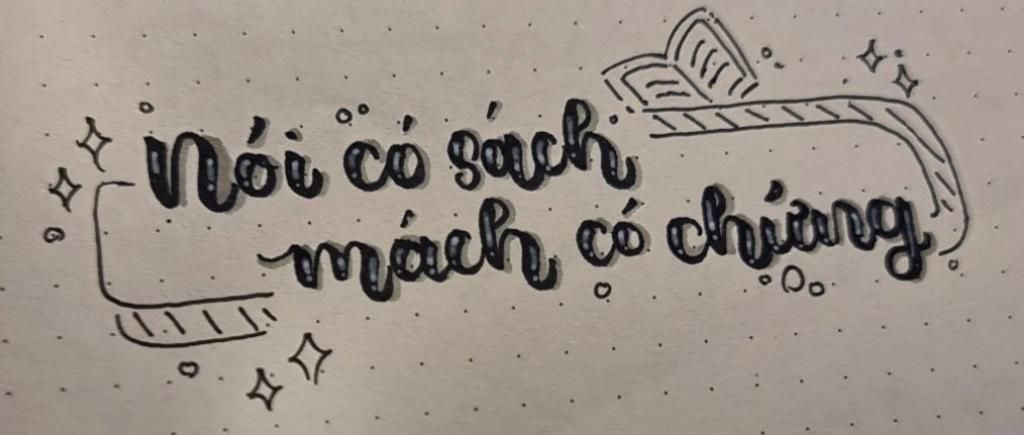 Nói có sách
mách có chứng